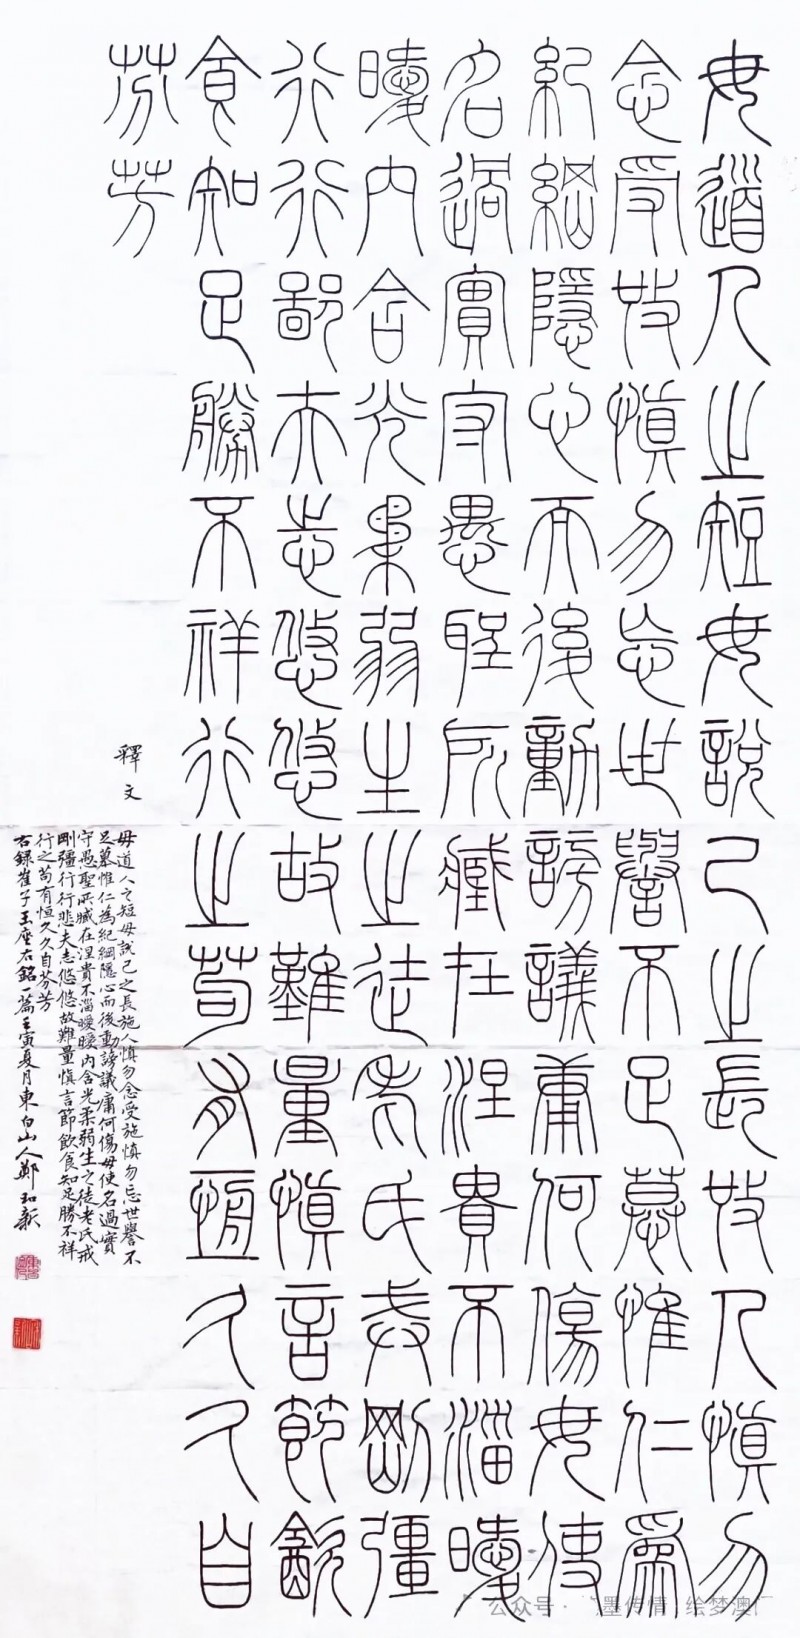 毋道人之短毋說己之長施人慎勿
念受施慎勿忘世譽不足慕惟仁為
紀綱隱心而後動謗議庸何傷毋使
名過實守愚聖所臧在涅貴不淄曖
曖內含光柔弱生之徒老氏戒剛彊
行行鄙夫志悠悠故難量慎言節飲
食知足勝不祥行之苟有恆久久自
芬芳
釋文
毋道人之短毋說己之長施人慎勿念受施慎勿忘世譽不
足慕惟仁為紀綱隱心而後動謗議庸何傷毋使名過實
守愚聖所臧在涅貴不淄曖曖內含光柔弱生之徒老氏戒
剛彊行行悲夫志悠悠故難量慎言節飲食知足勝不祥
行之苟有恒久久自芬芳
右錄崔子玉座右銘篇壬寅夏月東白山人鄭
公众号 · 墨传情 绘梦澳